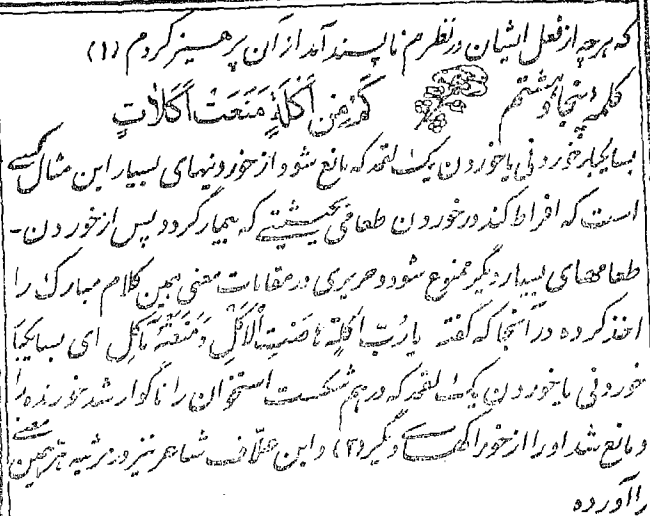 که هرچه از فعل ایشان در نظرم ناپسند آمد از آن پرهیز کردم (۱)
کلمه پنجاه و هشتم کَمْ مِنْ اَکْلَةٍ مَنَعَتْ اَکَلَاتٍ
بسا یکبار خوردنی یا خوردن یک لقمه که مانع شود از خوردنیهای بسیار این مثال کسی
است که افراط کند در خوردن طعامی بحیثیتے که بیمار گردد و پس از خوردن
طعامهای بسیار دیگر ممنوع شود و حریری در مقامات معنی همین کلام مبارک را
اخذ کرده در آنجا که گفته یا رُبَّ اَکْلَةٍ هَاضَتِ الْآکِلَ وَ مَنَعَتْهُ مَآکِلَ ای بسا یکبار
خوردنی یا خوردن یک لقمه که در هم شکست استخوان را ناگوار شد خورنده را
و مانع شد او را از خوراکهای دیگر (۲) و ابن علاف شاعر نیز در مرثیه هر همین معنے
را آورده